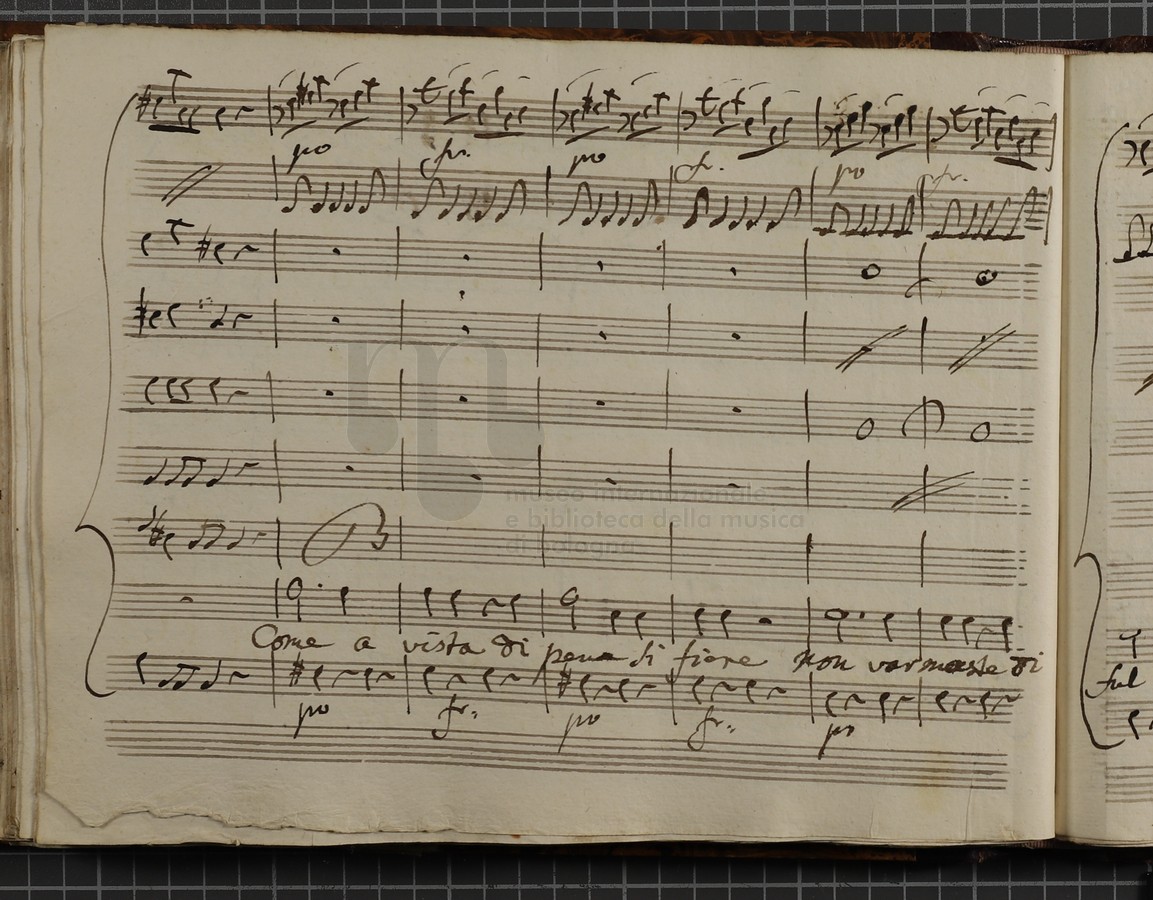 po fr. po fr. po fr.
museo internazionale
e biblioteca della musica
di bologna
Come a vista di pene si fiere non varmaste di
ful
po fr. po fr. po